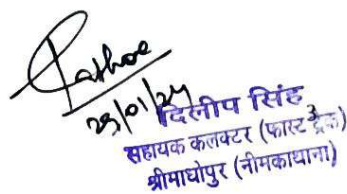 Rathoe
29/01/24
दिलीप सिंह
सहायक कलक्टर (फास्ट ट्रेक)
श्रीमाधोपुर (नीमकाथाना)